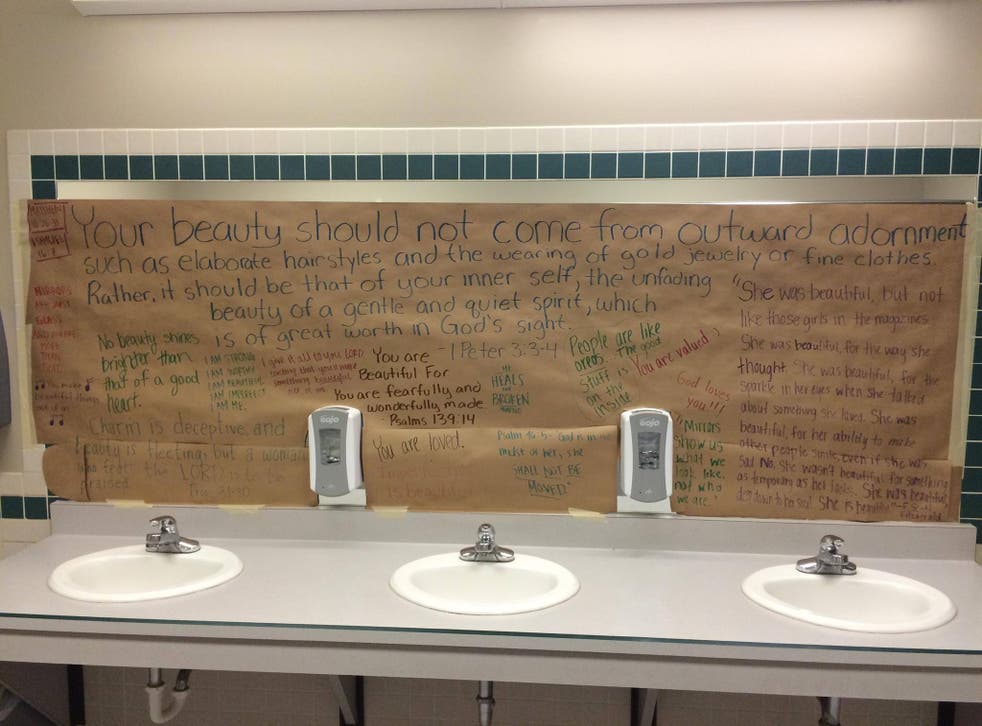 Your beauty should not come from outward adornment
such as elaborate hairstyles and the wearing of gold jewelry or fine clothes.
Rather, it should be that of your inner self, the unfading
beauty of a gentle and quiet spirit, which
is of great worth in God's sight.
- 1 Peter 3:3-4
MIRRORS
ARE JUST
GLASS
AND
MORE
THAN
THAT
No beauty shines
brighter than
that of a good
heart.
I AM STRONG
I AM WORTHY
I AM BEAUTIFUL
I AM IMPERFECT
I AM ME.
I give it all to you LORD
something beautiful
You are
Beautiful For
You are fearfully, and
wonderfully made
Psalms 139:14
HE
HEALS
the
BROKEN
People are like
oreos. The good
Stuff is
on the
inside
You are valued
God loves
you!!!
"She was beautiful, but not
like those girls in the magazines.
She was beautiful, for the way she
thought. She was beautiful, for the
sparkle in her eyes when she talked
about something she loved. She was
beautiful, for her ability to make
other people smile, even if she was
sad. No, she wasn't beautiful for something
as temporary as her looks. She was beautiful,
deep down to her soul. She is beautiful"
Fitzgerald
"Mirrors
show us
what we
look like,
not who
we are."
Charm is deceptive, and
beauty is fleeting; but a woman
who fears the LORD is to be
praised
31:30
You are loved.
is beautiful
Psalm 46:5 - God is in the
midst of her, she
SHALL NOT BE
MOVED"
GOJO
GOJO